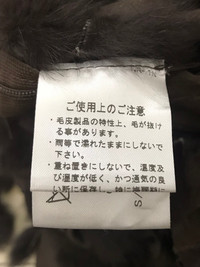 ご使用上のご注意
・毛皮製品の特性上、毛が抜け
る事があります。
・雨等で濡れたままにしないで
下さい。
・重ね置きにしないで、温度及
び湿度が低く、かつ通気の良
い所に保存し、特に